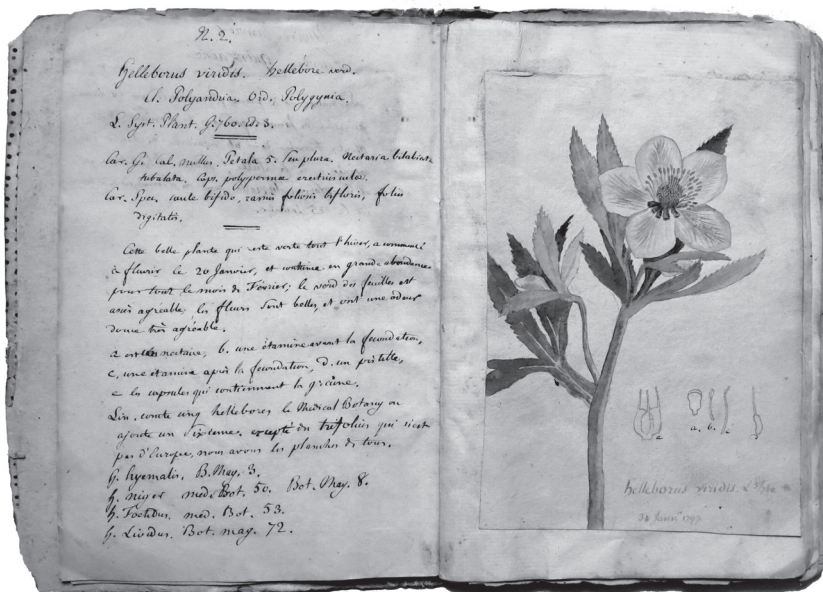 N. 2.
helleborus viridis. hellébore verd.
Cl. Polyandria. Ord. Polygynia.
L. Syst. Plant. G. 760. id. 3.
Car. G. Cal. nullus. Petala 5. seu plura. Nectaria bilabiata
tubulata. Caps. polyspermæ erectiusculæ.
Car. Spec. caule bifido, ramis foliosis bifloris, foliis
digitatis.
Cette belle plante qui reste verte tout l'hiver, a commencé
à fleurir le 20 Janvier, et continue en grande abondance
pour tout le mois de Fevrier; le verd des feuilles est
assès agreable, les fleurs sont belles, et ont une odeur
douce très agréable.
a est nectaire, b. une étamine avant la fecondation,
c. une étamine après la fecondation, d. un pistille,
e les capsules qui contiennent la graine.
Lin. compte cinq hellebores le Medical Botany en
ajoute un Sixieme. excepté du trifolius qui n'est
pas d'Europe, nous avons les planches de tous.
h. hyemalis. B. Mag. 3.
h. niger med. Bot. 50. Bot. Mag. 8.
h. Foetidus. med. Bot. 53.
h. Lividus. Bot. mag. 72.
a. b.
helleborus viridis. L.
1797